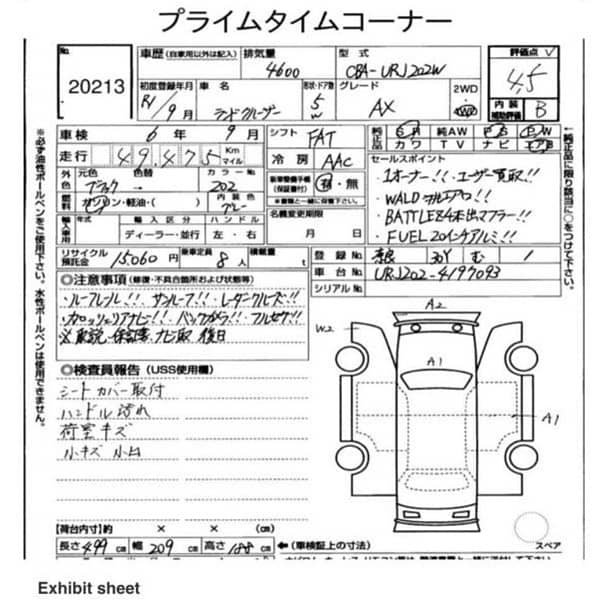 プライムタイムコーナー
No. 20213
車歴 (自家用以外は記入) 排気量 4600 型式 CBA-URJ202W 評価点 4.5
初度登録年月 R1/9月 車名 ランドクルーザー ドア・形状 5 W グレード AX 2WD 4WD 内装補助評価 B
車検 6年 9月 シフト FAT 純正 カワ 純AW TV ナビ
走行 49,475 Km マイル 冷房 AAC セールスポイント
外色 元色 ブラック 色替 カラーNo. 202 車両整備手帳(保証書付) 有・無 ・1オーナー!!・ユーザー買取!!
燃料 ガソリン・軽油・( ) 内装色 グレー ※書類と一緒に保管 ・WALD フルエアロ!!
輸入車用 年式 輸入区分 ハンドル 名義変更期限 ・BATTLEZ4本出マフラー!!
ディーラー・並行 左・右 月 日 ・FUEL20インチアルミ!!
リサイクル預託金 15060円 乗車定員 8人 積載量 t 登録No.
車台No. URJ202-4197093
シリアルNo.
◎注意事項 (修復・不具合箇所および状態等)
・ルーフレール!!・サンルーフ!!・レーダークルーズ!!
・カロッツェリアナビ!!・バックカメラ!!・フルセグ!!
※取説・保証書・ナビ取 後日
◎検査員報告 (USS使用欄)
シートカバー取付
ハンドル汚れ
荷室キズ
小キズ 小凹
A2
W2
A1
A1
スペア
【荷台内寸】約 × ×
長さ 499 cm 幅 209 cm 高さ 188 cm ←(車検証上の寸法)
※必ず油性ボールペンをご使用下さい。水性ボールペンは使用できません。
純正品に限り該当に○をつけて下さい。
Exhibit sheet